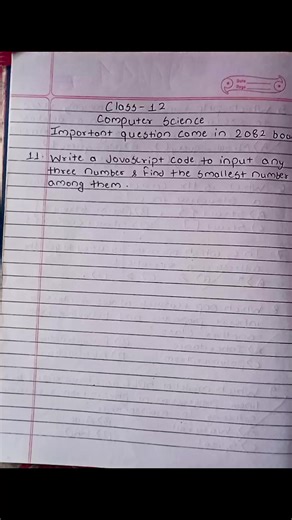 Date
Page
Class-12
Computer Science
Important question come in 2082 boa
11. Write a Javascript code to input any
three number & find the smallest number
among them.